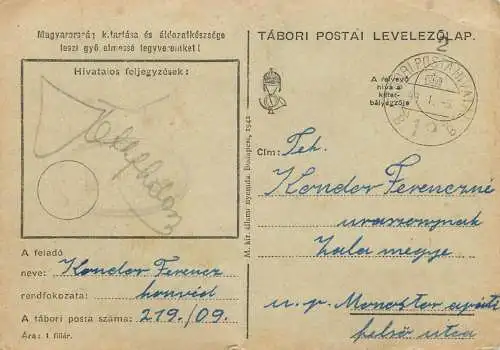 Magyarország kitartása és áldozatkészsége
teszi győzelmessé fegyvereinket!
Hivatalos feljegyzések:
A feladó
neve: Kondor Ferencz
rendfokozata: honvéd
A tábori posta száma: 219./09.
Ára: 1 fillér.
M. kir. állami nyomda, Budapest, 1942
TÁBORI POSTAI LEVELEZŐLAP.
2
A felvevő
hivatal
kelet-
bélyegzője
TÁBORI POSTAHIVATAL
Cím: Teh.
Kondor Ferenczné
uraszonynak
Zala mégye
u. p. Monostor apáti
felső utca